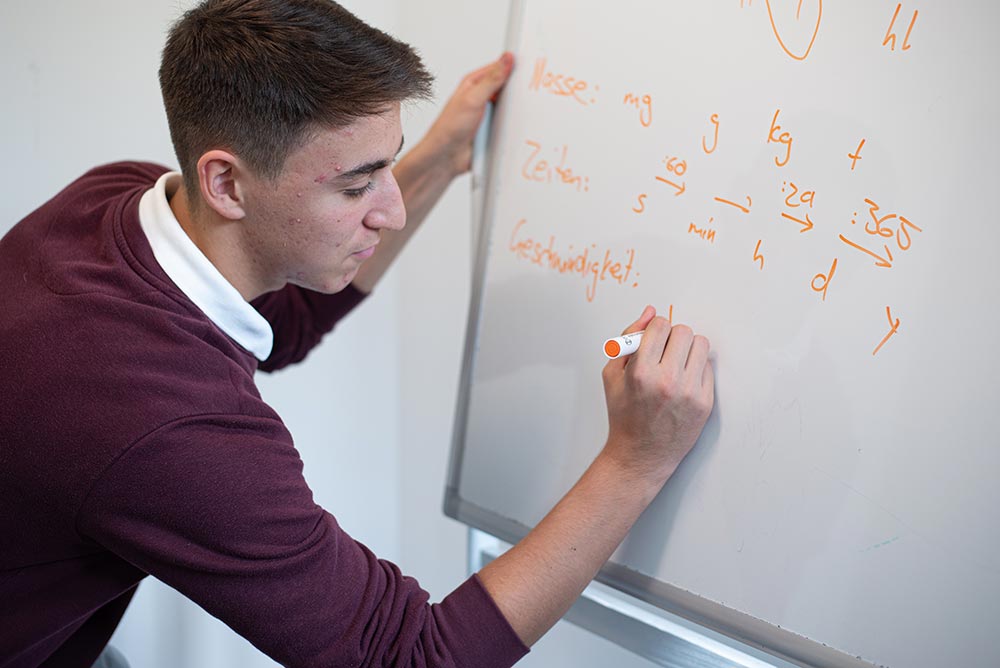 hl
Masse: mg g kg t
Zeiten: s :60 → min → h :24 → d :365 → y
Geschwindigkeit: